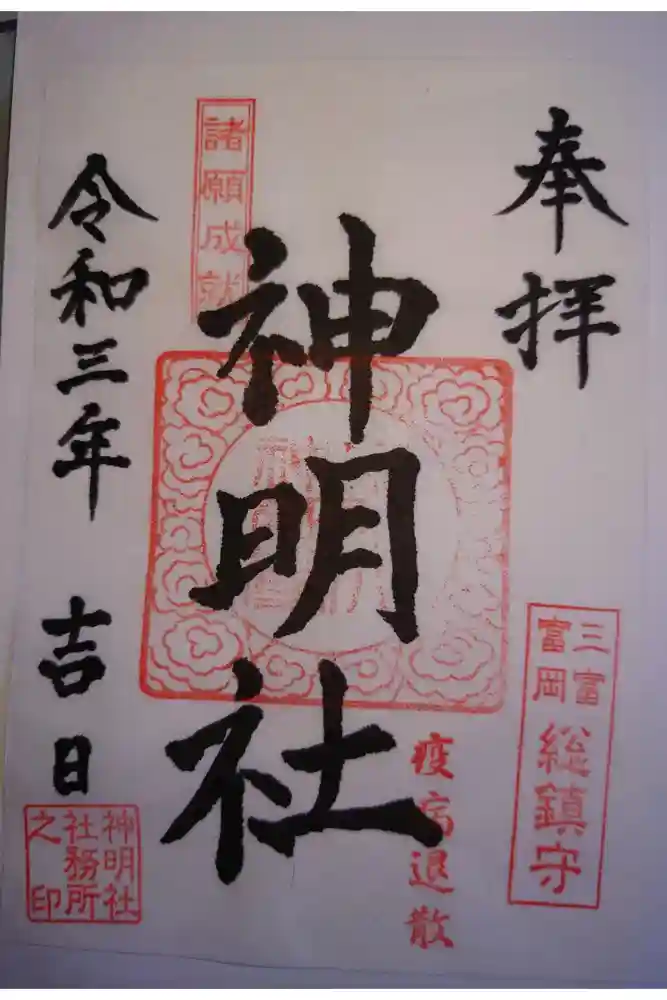 奉拝
三富
富岡
総鎮守
諸願成就
神明社
疫病退散
令和三年 吉日
神明社
社務所
之印